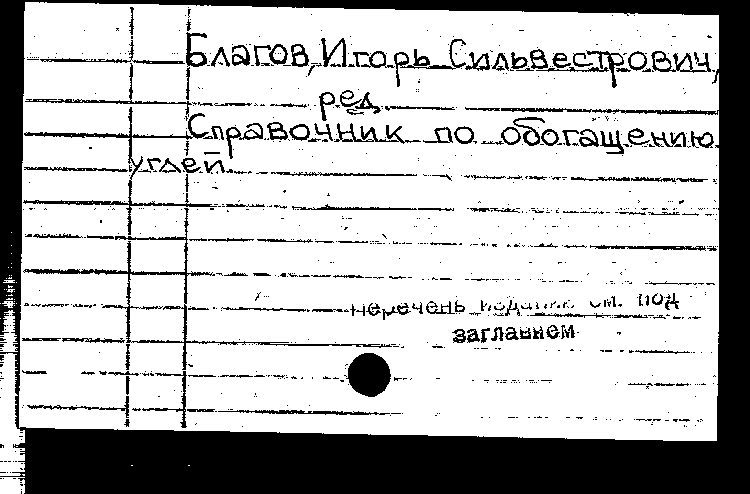 Благов, Игорь Сильвестрович,
ред.
Справочник по обогащению
углей.
перечень изданий см. под
заглавием